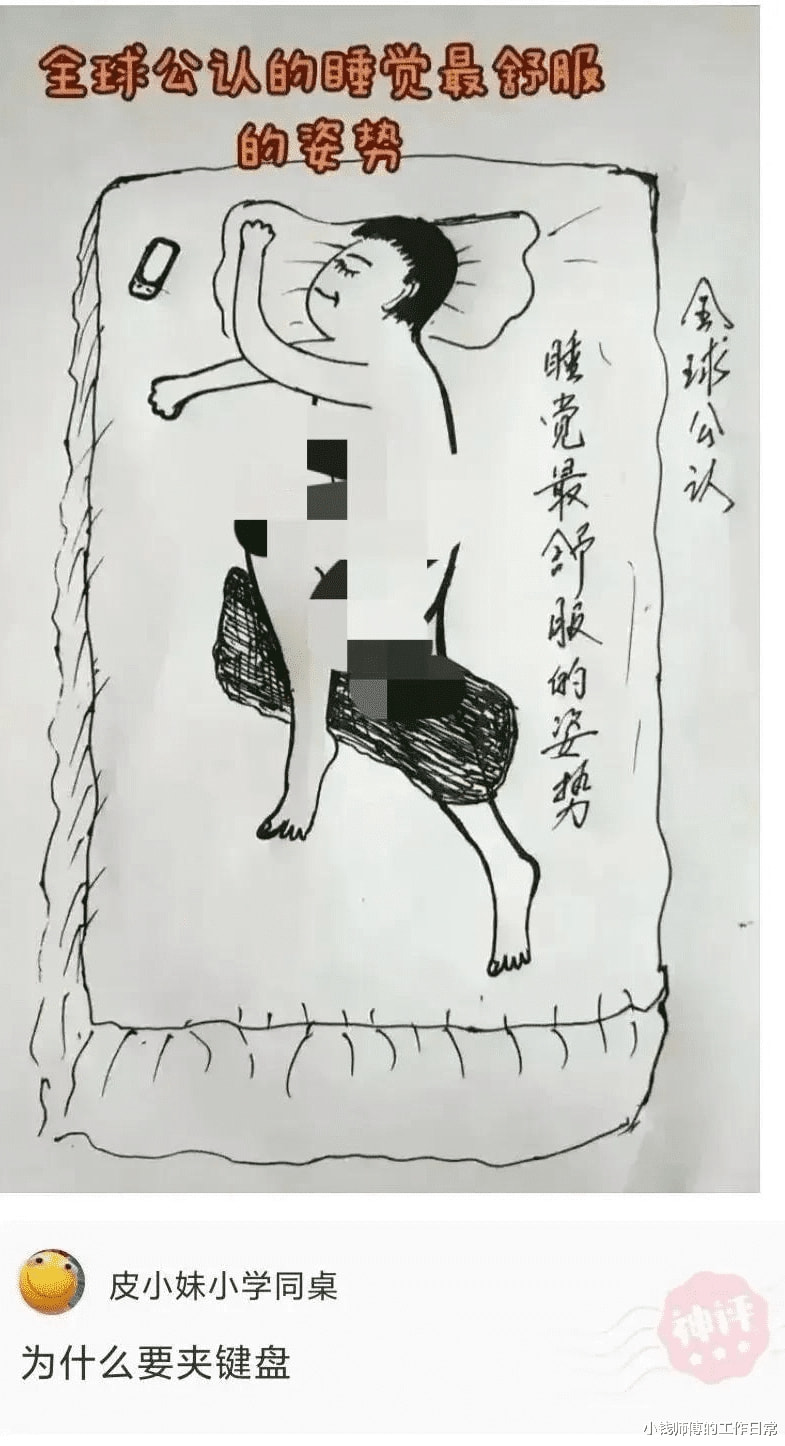 全球公认的睡觉最舒服
的姿势
全球公认
睡觉最舒服的姿势
皮小妹小学同桌
为什么要夹键盘
神评
小钱师傅的工作日常